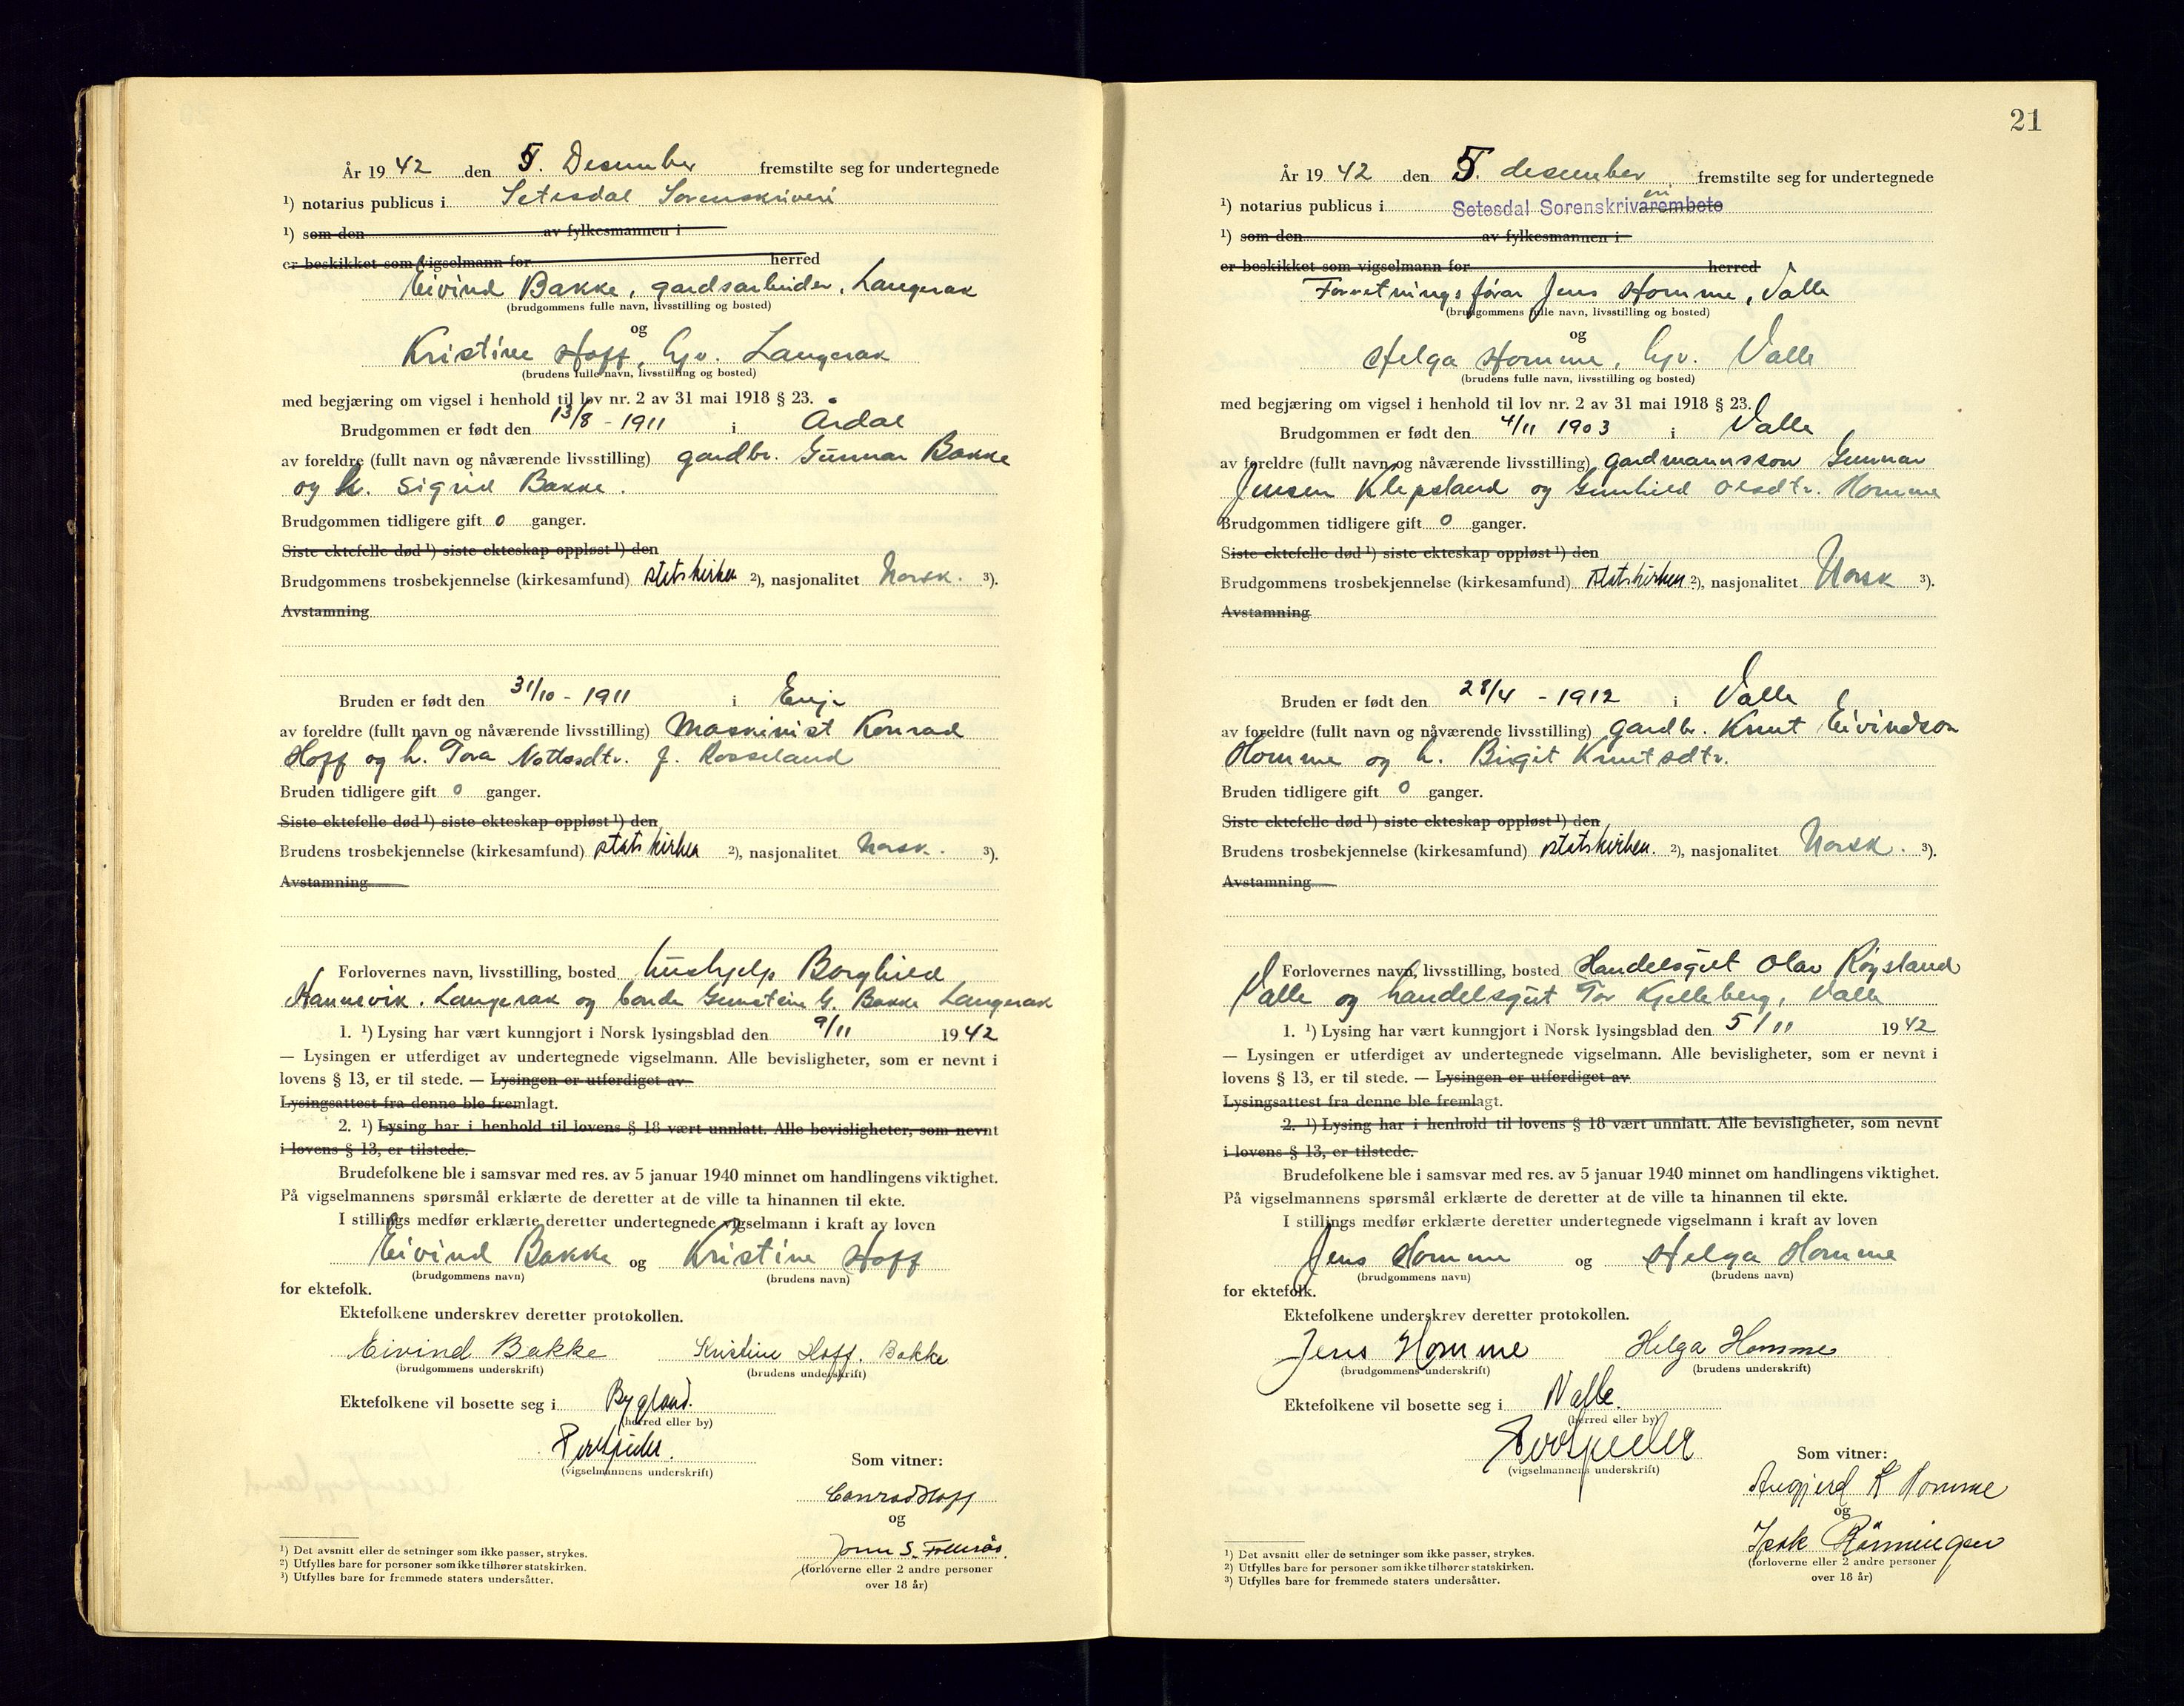 År 19 42 den 5. Desember fremstilte seg for undertegnede
¹) notarius publicus i Setesdal Sorenskriveri
¹) som den av fylkesmannen i
er beskikket som vigselmann for herred
Eivind Bakke, gardsarbeider, Langerak
(brudgommens fulle navn, livsstilling og bosted)
og
Kristine Hoff, hjv. Langerak
(brudens fulle navn, livsstilling og bosted)
med begjæring om vigsel i henhold til lov nr. 2 av 31 mai 1918 § 23.
Brudgommen er født den 13/8 - 1911 i Årdal
av foreldre (fullt navn og nåværende livsstilling) gardbr. Gunnar Bakke
og h. Sigrid Bakke.
Brudgommen tidligere gift 0 ganger.
Siste ektefelle død ¹) siste ekteskap oppløst ¹) den
Brudgommens trosbekjennelse (kirkesamfund) statskirken ²), nasjonalitet Norsk. ³).
Avstamning
Bruden er født den 31/10 - 1911 i Evje
av foreldre (fullt navn og nåværende livsstilling) Maskinist Konrad
Hoff og h. Tora Nottosdtr. f. Rosseland
Bruden tidligere gift 0 ganger.
Siste ektefelle død ¹) siste ekteskap oppløst ¹) den
Brudens trosbekjennelse (kirkesamfund) statskirken ²), nasjonalitet Norsk. ³).
Avstamning
Forlovernes navn, livsstilling, bosted hushjelp Borghild
Langerak og Gunstein G. Bakke Langerak
1. ¹) Lysing har vært kunngjort i Norsk lysingsblad den 9/11 1942
— Lysingen er utferdiget av undertegnede vigselmann. Alle bevisligheter, som er nevnt i
lovens § 13, er til stede. — Lysingen er utferdiget av
Lysingsattest fra denne ble fremlagt.
2. ¹) Lysing har i henhold til lovens § 18 vært unnlatt. Alle bevisligheter, som nevnt
i lovens § 13, er tilstede.
Brudefolkene ble i samsvar med res. av 5 januar 1940 minnet om handlingens viktighet.
På vigselmannens spørsmål erklærte de deretter at de ville ta hinannen til ekte.
I stillings medfør erklærte deretter undertegnede vigselmann i kraft av loven
Eivind Bakke og Kristine Hoff
(brudgommens navn) (brudens navn)
for ektefolk.
Ektefolkene underskrev deretter protokollen.
Eivind Bakke Kristine Hoff. Bakke
(brudgommens underskrift) (brudens underskrift)
Ektefolkene vil bosette seg i Bygland.
(herred eller by)
(vigselmannens underskrift)
Som vitner:
Conrad Hoff
og
S.
(forloverne eller 2 andre personer
over 18 år)
¹) Det avsnitt eller de setninger som ikke passer, strykes.
²) Utfylles bare for personer som ikke tilhører statskirken.
³) Utfylles bare for fremmede staters undersåtter.
21
År 19 42 den 5. desember fremstilte seg for undertegnede
¹) notarius publicus i Setesdal Sorenskrivarembete eri
¹) som den av fylkesmannen i
er beskikket som vigselmann for herred
Forretningsførar Jens Homme, Valle
(brudgommens fulle navn, livsstilling og bosted)
og
Helga Homme, hjv. Valle
(brudens fulle navn, livsstilling og bosted)
med begjæring om vigsel i henhold til lov nr. 2 av 31 mai 1918 § 23.
Brudgommen er født den 4/11 1903 i Valle
av foreldre (fullt navn og nåværende livsstilling) gardmannsson Gunnar
Jensen Klepsland og Gunhild Olsdtr. Homme
Brudgommen tidligere gift 0 ganger.
Siste ektefelle død ¹) siste ekteskap oppløst ¹) den
Brudgommens trosbekjennelse (kirkesamfund) statskirken ²), nasjonalitet Norsk ³).
Avstamning
Bruden er født den 28/4 - 1912 i Valle
av foreldre (fullt navn og nåværende livsstilling) gardbr. Knut Eivindson
Homme og h. Birgit Knutsdtr.
Bruden tidligere gift 0 ganger.
Siste ektefelle død ¹) siste ekteskap oppløst ¹) den
Brudens trosbekjennelse (kirkesamfund) statskirken. ²), nasjonalitet Norsk. ³).
Avstamning
Forlovernes navn, livsstilling, bosted Handelsgut Olav Röysland
Valle og handelsgut Tor Kjelleberg, Valle
1. ¹) Lysing har vært kunngjort i Norsk lysingsblad den 5/11 1942
— Lysingen er utferdiget av undertegnede vigselmann. Alle bevisligheter, som er nevnt i
lovens § 13, er til stede. — Lysingen er utferdiget av
Lysingsattest fra denne ble fremlagt.
2. ¹) Lysing har i henhold til lovens § 18 vært unnlatt. Alle bevisligheter, som nevnt
i lovens § 13, er tilstede.
Brudefolkene ble i samsvar med res. av 5 januar 1940 minnet om handlingens viktighet.
På vigselmannens spørsmål erklærte de deretter at de ville ta hinannen til ekte.
I stillings medfør erklærte deretter undertegnede vigselmann i kraft av loven
Jens Homme og Helga Homme
(brudgommens navn) (brudens navn)
for ektefolk.
Ektefolkene underskrev deretter protokollen.
Jens Homme Helga Homme
(brudgommens underskrift) (brudens underskrift)
Ektefolkene vil bosette seg i Valle.
(herred eller by)
(vigselmannens underskrift)
Som vitner:
K Homme
og
Rönningen
(forloverne eller 2 andre personer
over 18 år)
¹) Det avsnitt eller de setninger som ikke passer, strykes.
²) Utfylles bare for personer som ikke tilhører statskirken.
³) Utfylles bare for fremmede staters undersåtter.